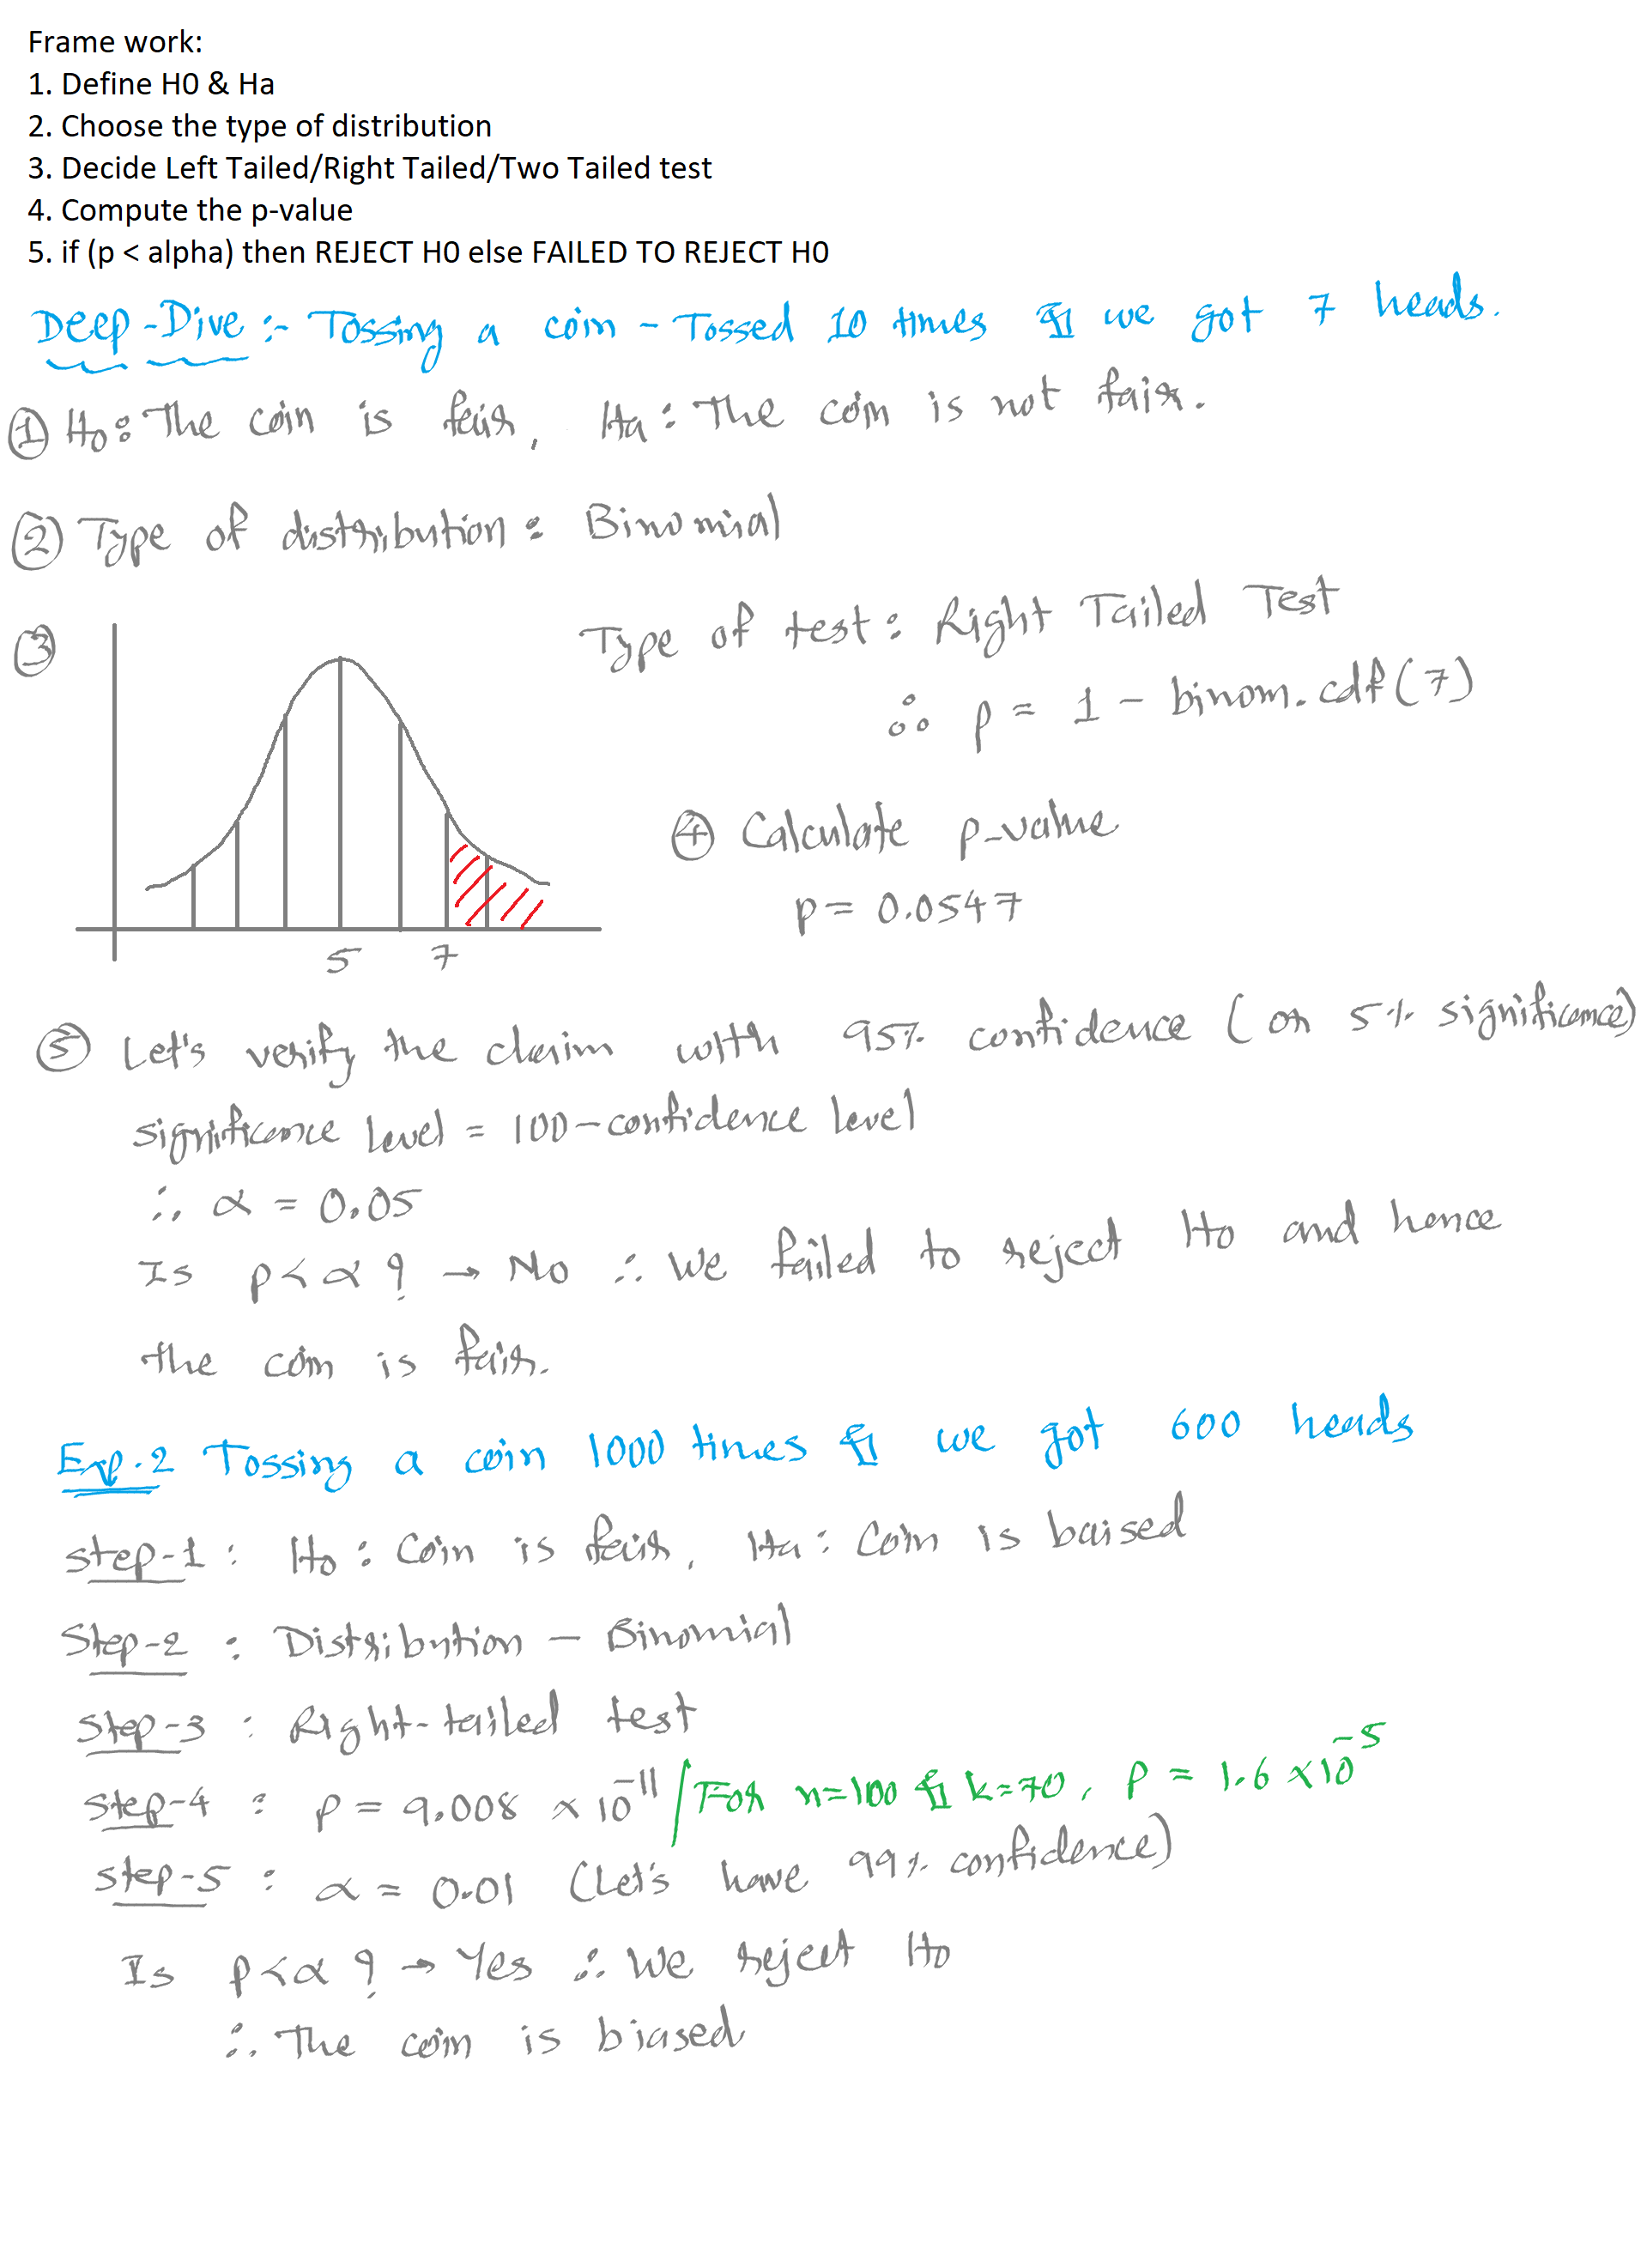 Frame work:
1. Define H0 & Ha
2. Choose the type of distribution
3. Decide Left Tailed/Right Tailed/Two Tailed test
4. Compute the p-value
5. if (p < alpha) then REJECT H0 else FAILED TO REJECT H0
Deep-Dive :- Tossing a coin - Tossed 10 times & we got 7 heads.
① H0: The coin is fair, Ha: The coin is not fair.
② Type of distribution: Binomial
③ Type of test: Right Tailed Test
∴ p = 1 - binom.cdf(7)
④ Calculate p-value
p = 0.0547
5 7
⑤ Let's verify the claim with 95% confidence (or 5% significance)
significance level = 100-confidence level
∴ α = 0.05
Is p<α ? → No ∴ We failed to reject H0 and hence
the coin is fair.
Exp.2 Tossing a coin 1000 times & we got 600 heads
step-1 : H0 : Coin is fair, Ha : Coin is baised
Step-2 : Distribution - Binomial
Step-3 : Right-tailed test
Step-4 : p = 9.008 × 10^-11 / For n=100 & k=70, p = 1.6 × 10^-5
Step-5 : α = 0.01 (Let's have 99% confidence)
Is p<α ? → Yes ∴ We reject H0
∴ The coin is biased